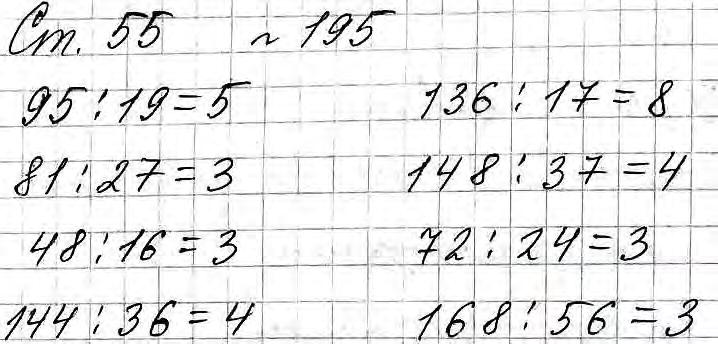 Ст. 55 ~ 195
95 : 19 = 5 136 : 17 = 8
81 : 27 = 3 148 : 37 = 4
48 : 16 = 3 72 : 24 = 3
144 : 36 = 4 168 : 56 = 3